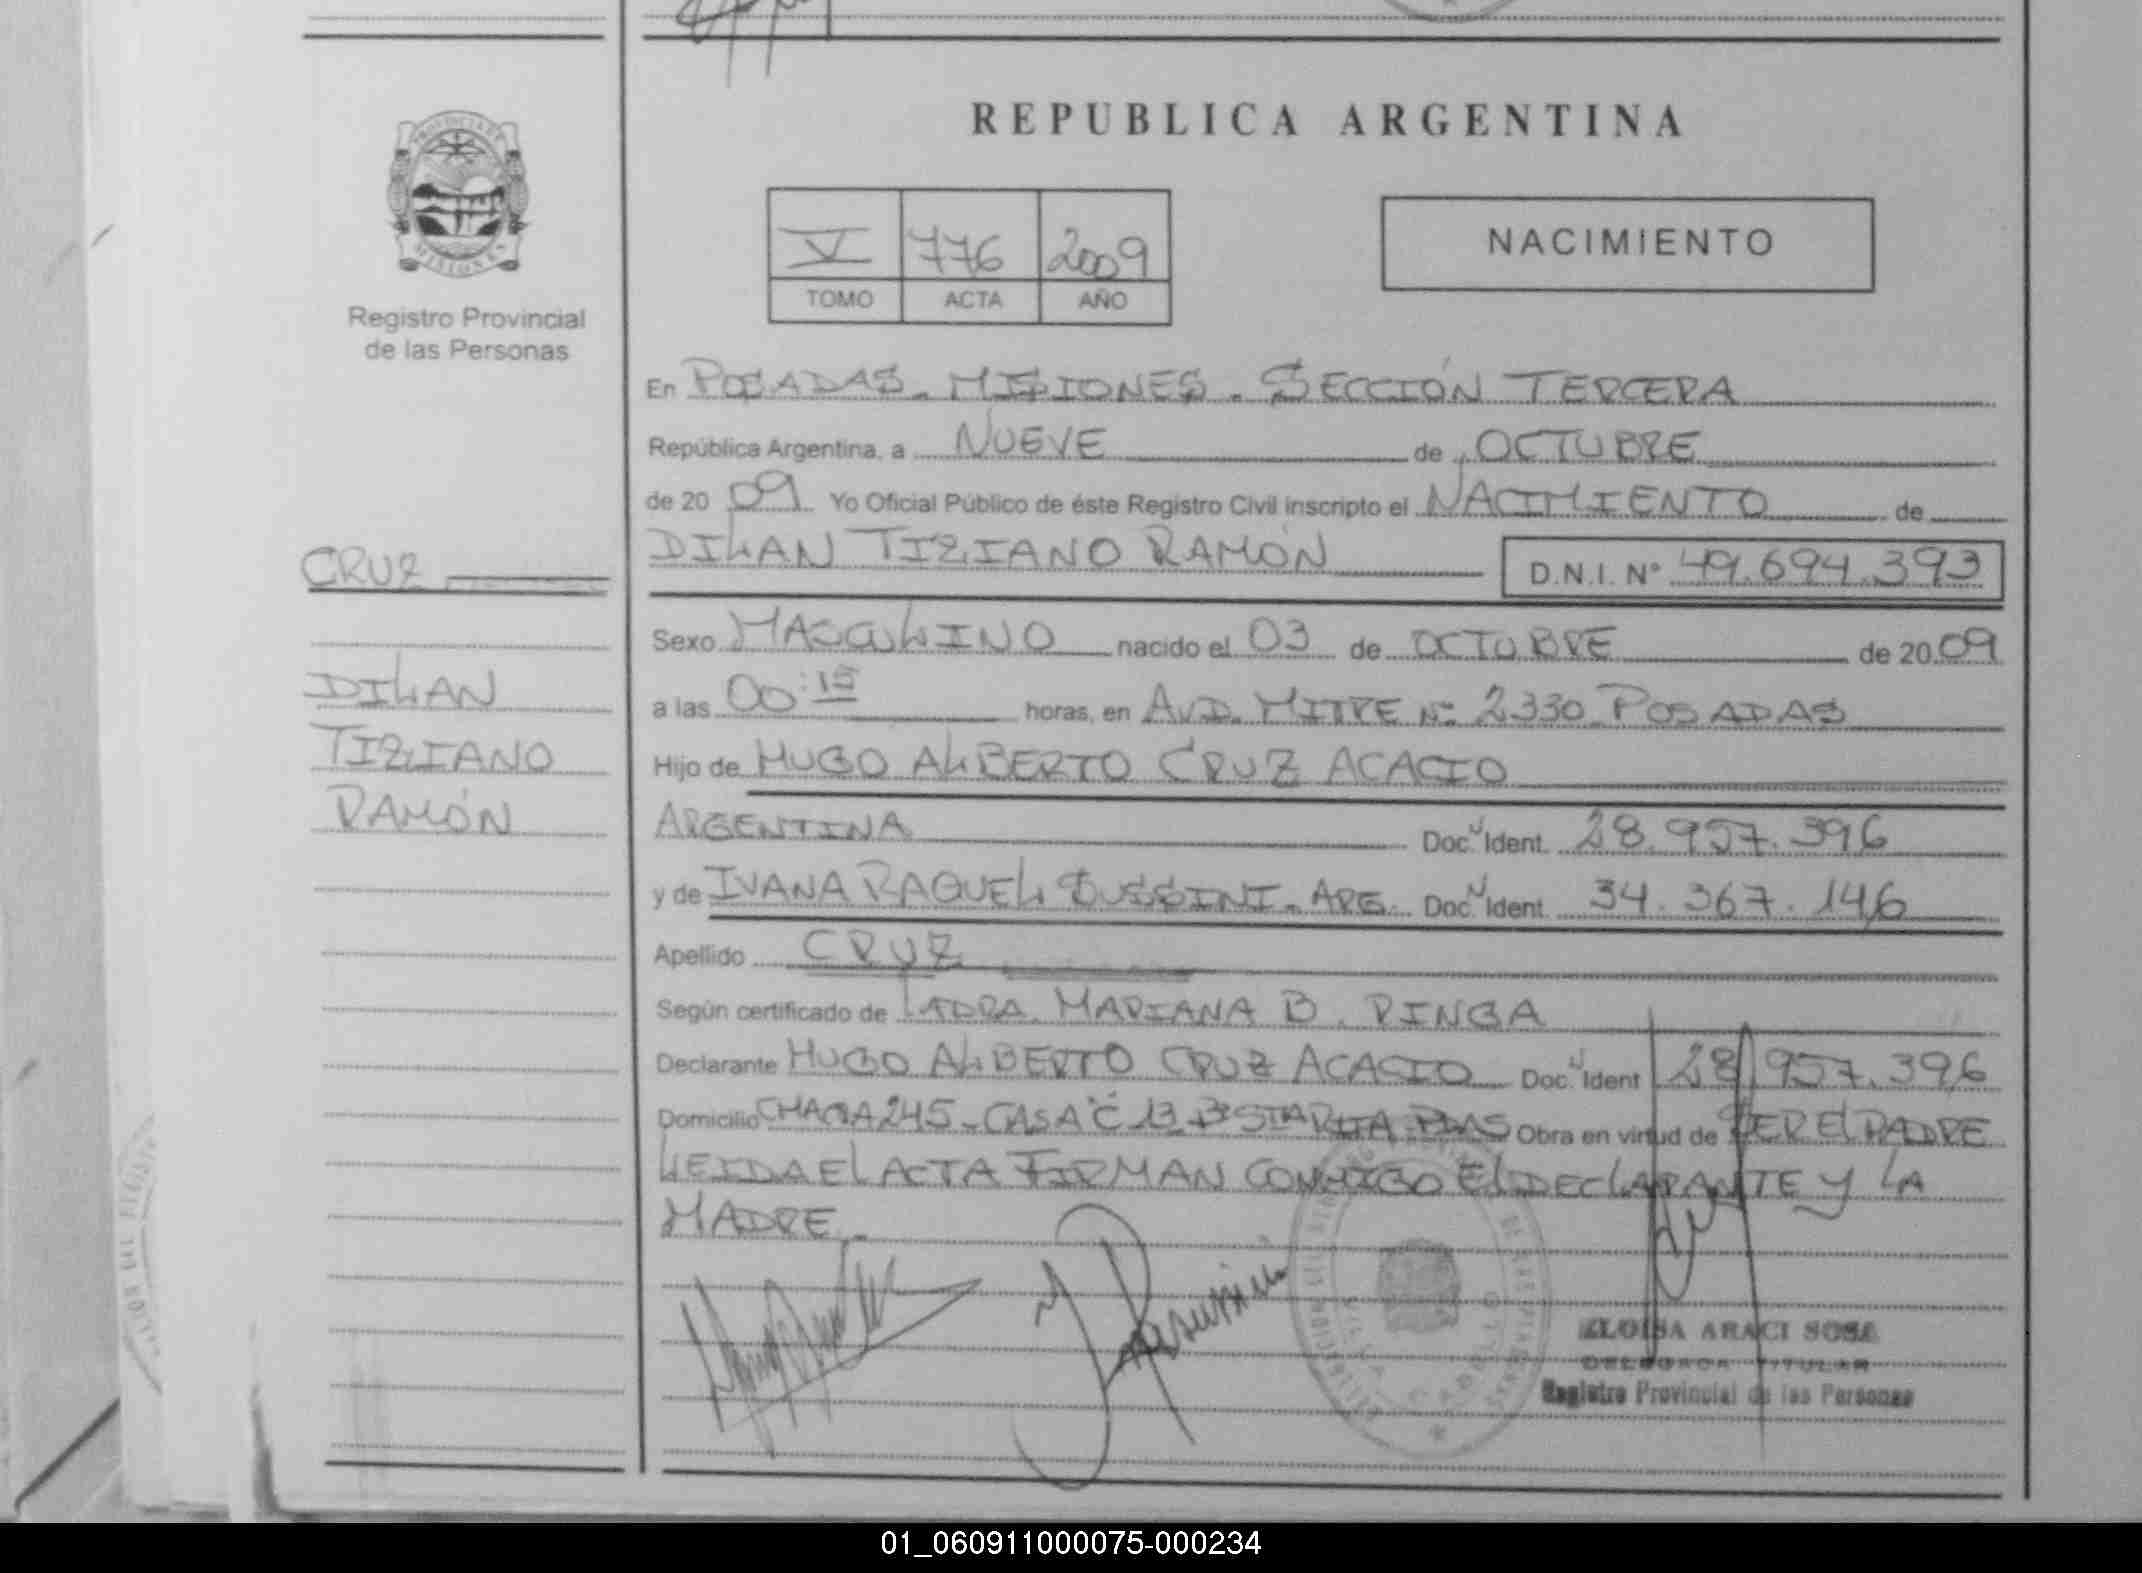 REPUBLICA ARGENTINA
PROVINCIA DE
MISIONES
Registro Provincial
de las Personas
V 776 2009
TOMO ACTA AÑO
NACIMIENTO
En POSADAS - MISIONES - SECCIÓN TERCERA
República Argentina, a NUEVE de OCTUBRE
de 2009 Yo Oficial Público de éste Registro Civil inscripto el NACIMIENTO de
DILAN TIZIANO RAMÓN D.N.I. Nº 49.694.393
CRUZ
DILAN
TIZIANO
RAMÓN
Sexo MASCULINO nacido el 03 de OCTUBRE de 2009
a las 00:15 horas, en AVD. MITRE Nº 2330 POSADAS
Hijo de HUGO ALBERTO CRUZ ACACIO
ARGENTINA Doc. Ident. 28.957.396
y de IVANA RAQUEL SUSSINI - ARG. Doc. Ident. 34.367.146
Apellido CRUZ
Según certificado de LA DRA. MARIANA B. RINGA
Declarante HUGO ALBERTO CRUZ ACACIO Doc. Ident 28.957.396
Domicilio CHACRA 245 - CASA "C" 13 Bº STA RITA PDAS Obra en virtud de SER El PADRE
LEIDA El ACTA FIRMAN CONMIGO El DECLARANTE Y LA
MADRE
ELOISA ARACI SOSA
DELEGADA TITULAR
Registro Provincial de las Personas
01_060911000075-000234